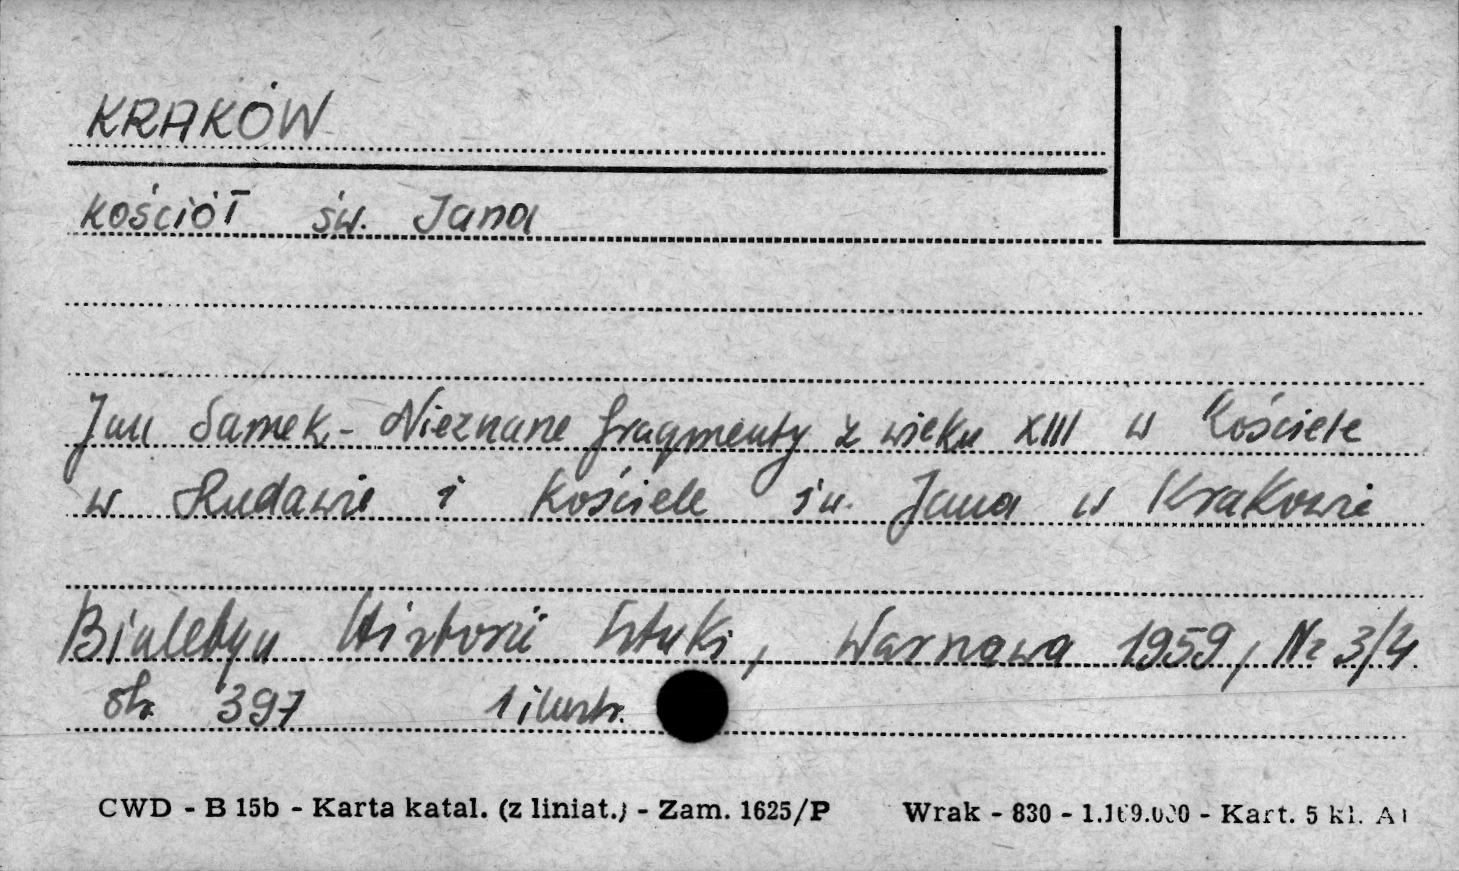 KRAKÓW
kościół św. Jana
Jan Samek - Nieznane fragmenty z wieku XIII w kościele
w Rudawie i kościele św. Jana w Krakowie
Biuletyn Historii Sztuki, Warszawa 1959, Nr 3/4
str. 397 1 ilustr.
CWD - B 15b - Karta katal. (z liniat.) - Zam. 1625/P Wrak - 830 - - Kart. 5 kl.